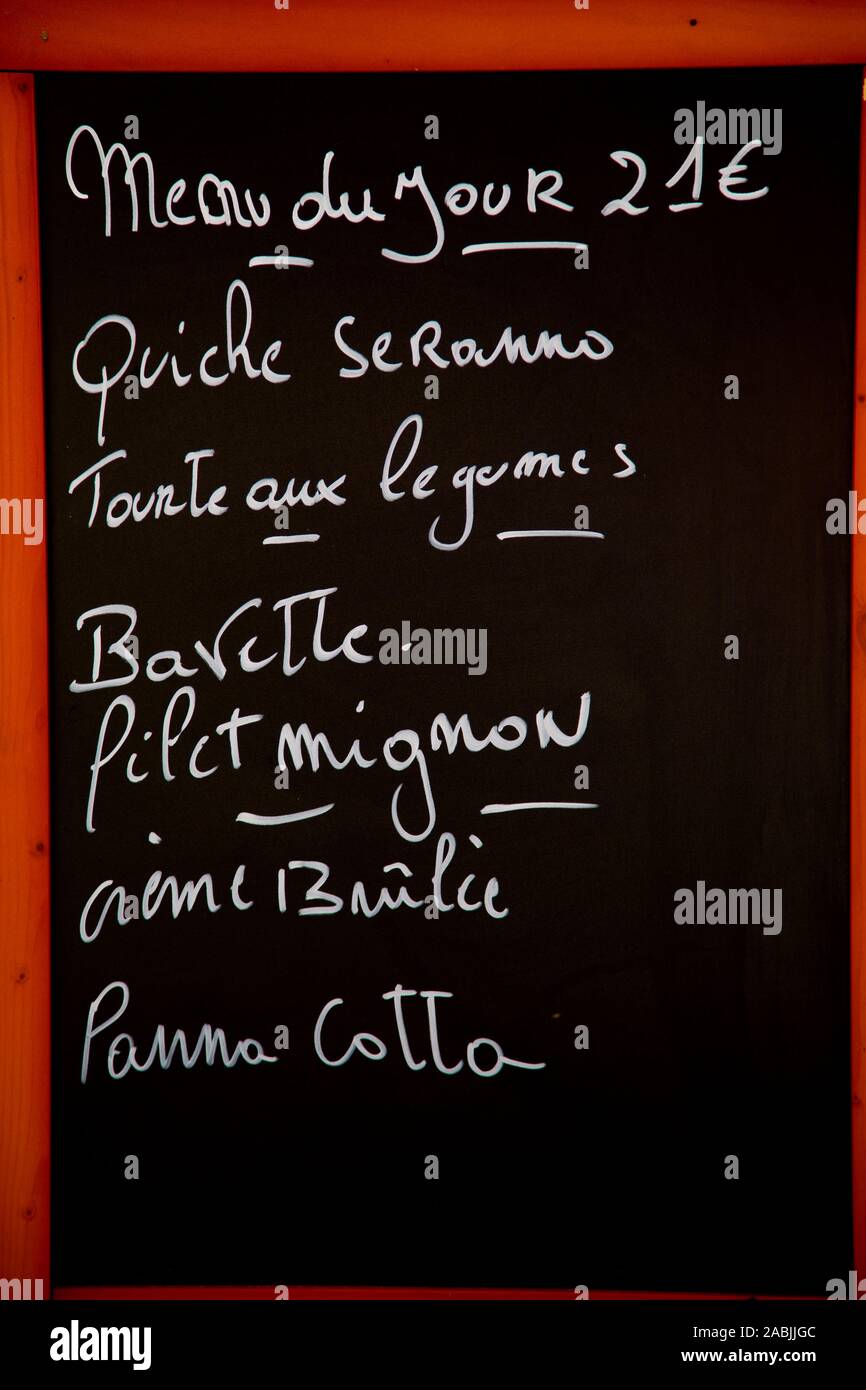 Menu du Jour 21€
Quiche Seranno
Tourte aux legumes
Bavette.
filet mignon
crème Brûlée
Panna Cotta
alamy
Image ID: 2ABJJGC
www.alamy.com